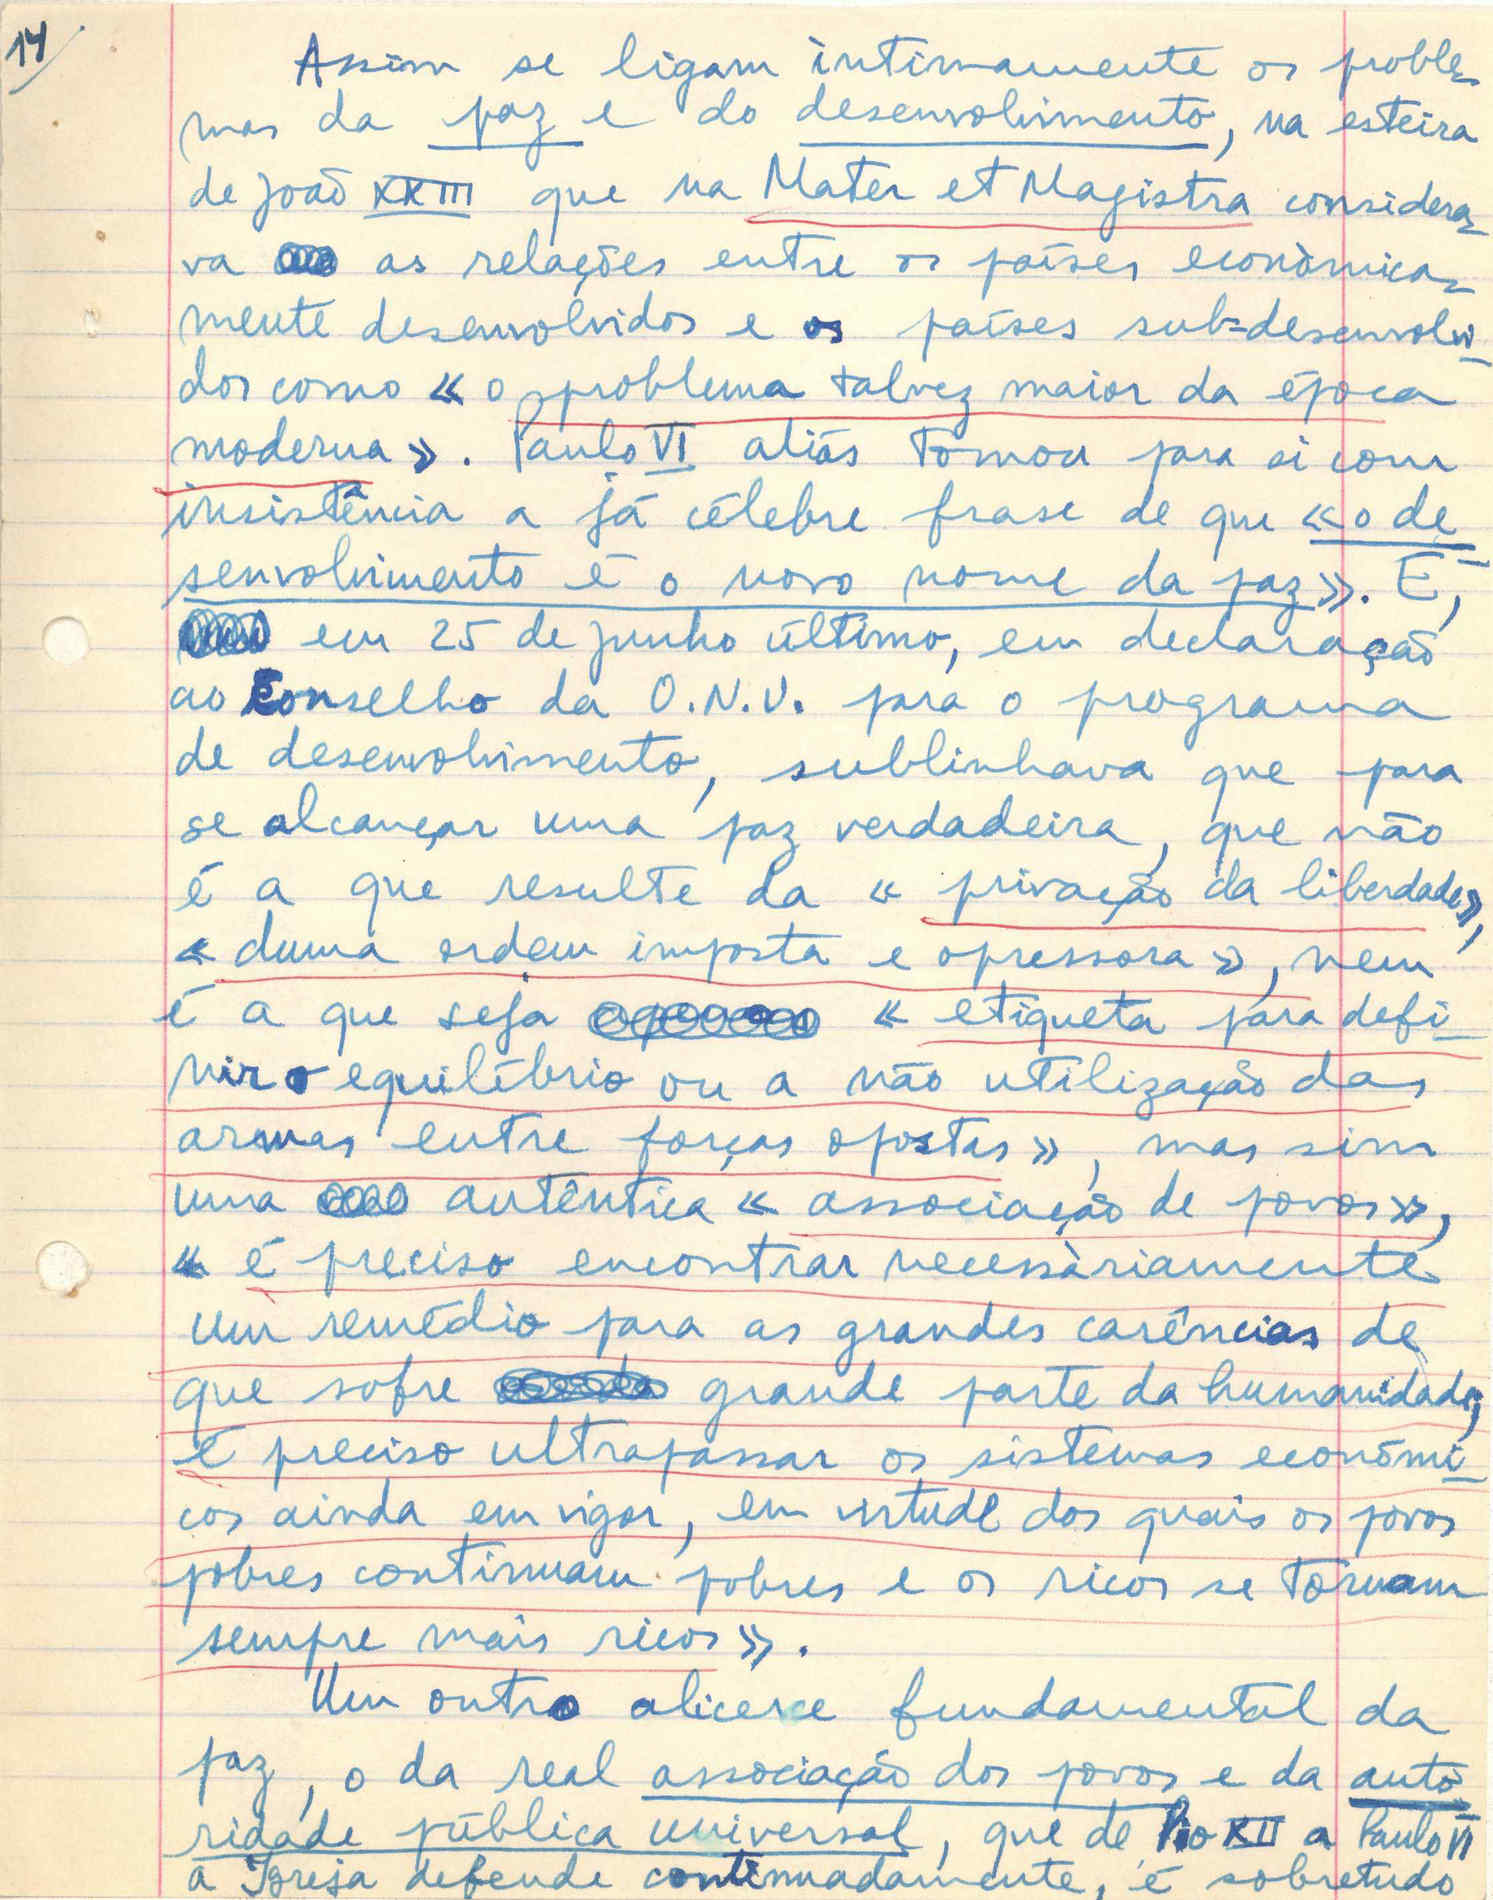 14
Assim se ligam intimamente os proble-
mas da paz e do desenvolvimento, na esteira
de João XXIII que na Mater et Magistra considera-
va as relações entre os países econòmica-
mente desenvolvidos e os países sub-desenvolvi-
dos como « o problema talvez maior da época
moderna ». Paulo VI aliás tomou para si com
insistência a já célebre frase de que « o de-
senvolvimento é o novo nome da paz ». E,
em 25 de junho último, em declaração
ao Conselho da O.N.U. para o programa
de desenvolvimento, sublinhava que para
se alcançar uma paz verdadeira, que não
é a que resulte da « privação da liberdade »,
« duma ordem imposta e opressora », nem
é a que seja « etiqueta para defi-
nir o equilíbrio ou a não utilização das
armas entre forças opostas », mas sim
uma autêntica « associação de povos »,
« é preciso encontrar necessàriamente
um remédio para as grandes carências de
que sofre grande parte da humanidade;
é preciso ultrapassar os sistemas económi-
cos ainda em vigor, em virtude dos quais os povos
pobres continuam pobres e os ricos se tornam
sempre mais ricos ».
Um outro alicerce fundamental da
paz, o da real associação dos povos e da auto-
ridade pública universal, que de Pio XII a Paulo VI
a Igreja defende continuadamente, é sobretudo